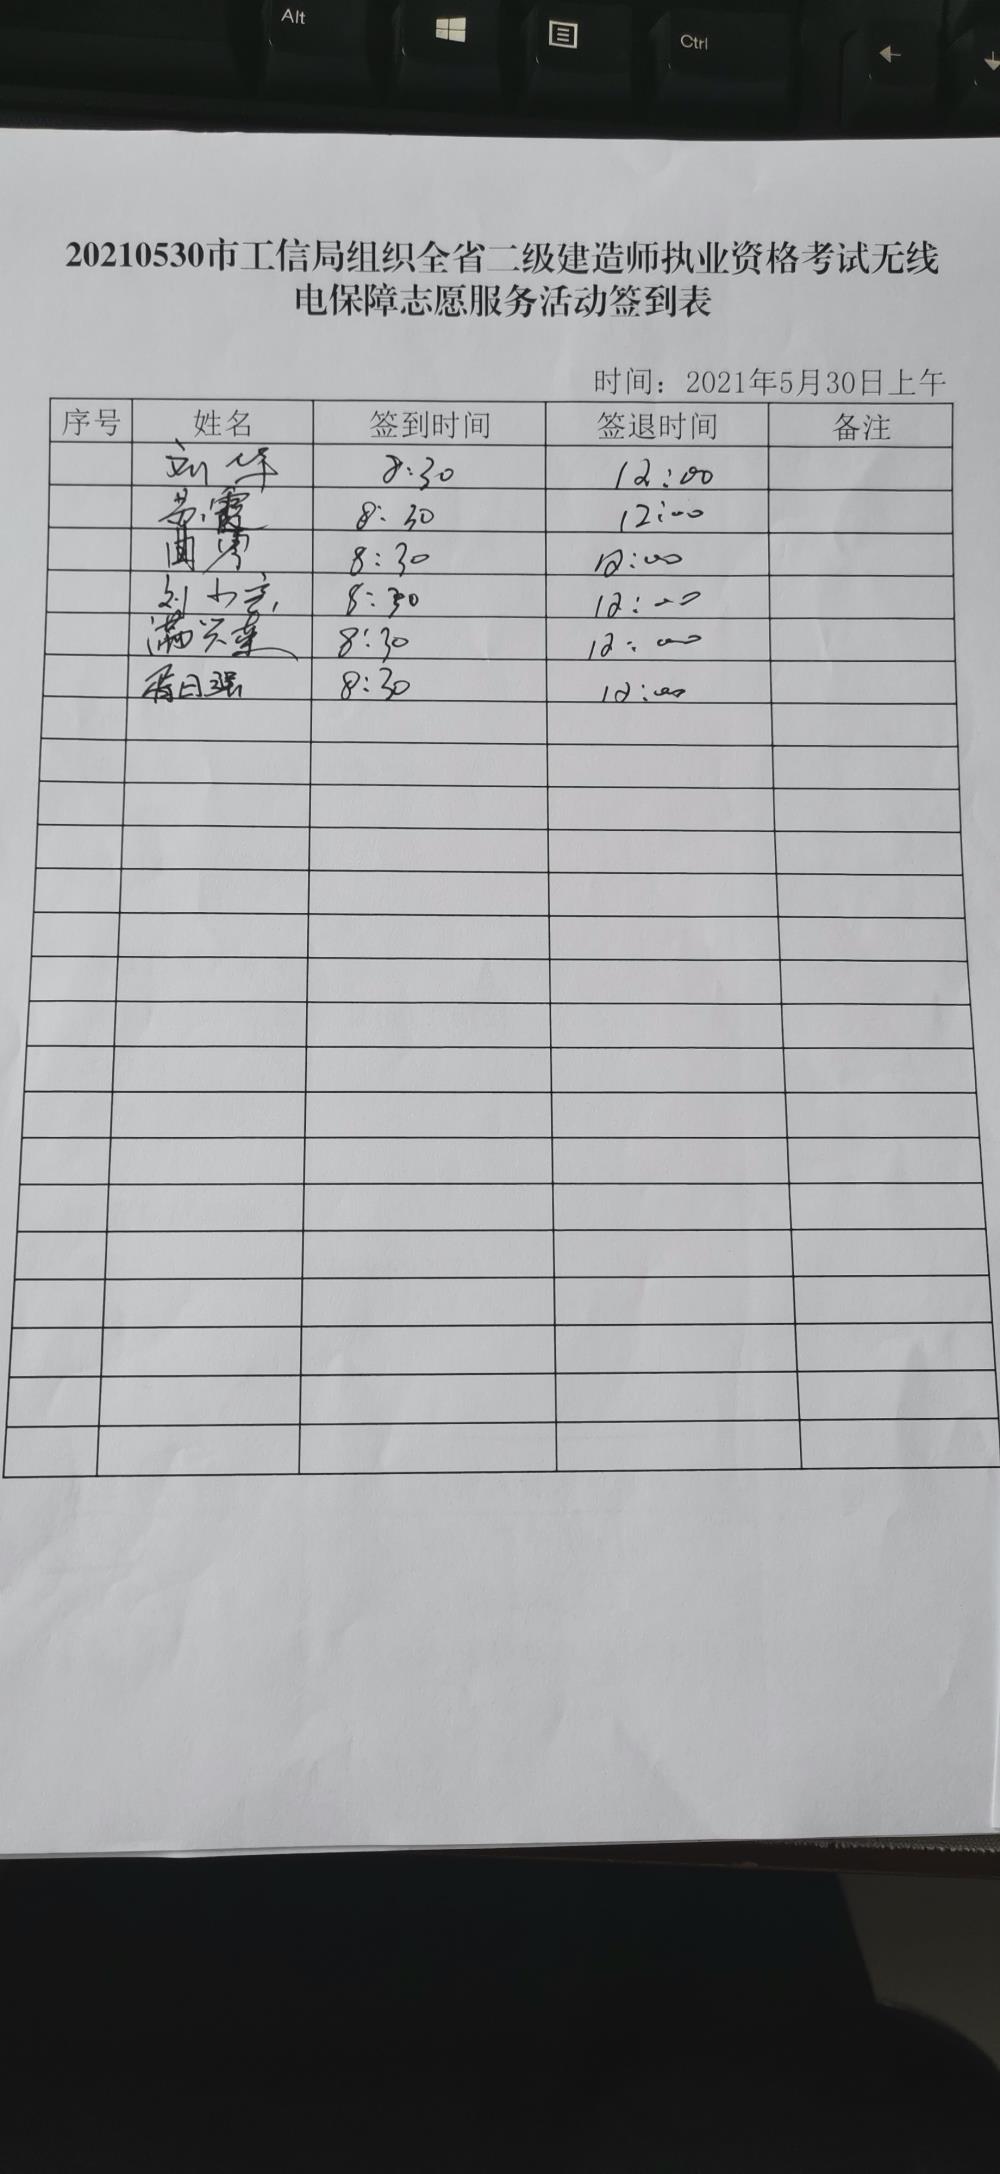 Alt
Ctrl
20210530市工信局组织全省二级建造师执业资格考试无线
电保障志愿服务活动签到表
时间：2021年5月30日上午
序号 姓名 签到时间 签退时间 备注
刘华 8:30 12:00
苏霞 8:30 12:00
曲 8:30 12:00
刘小 8:30 12:00
满兴 8:30 12:00
日强 8:30 12:00